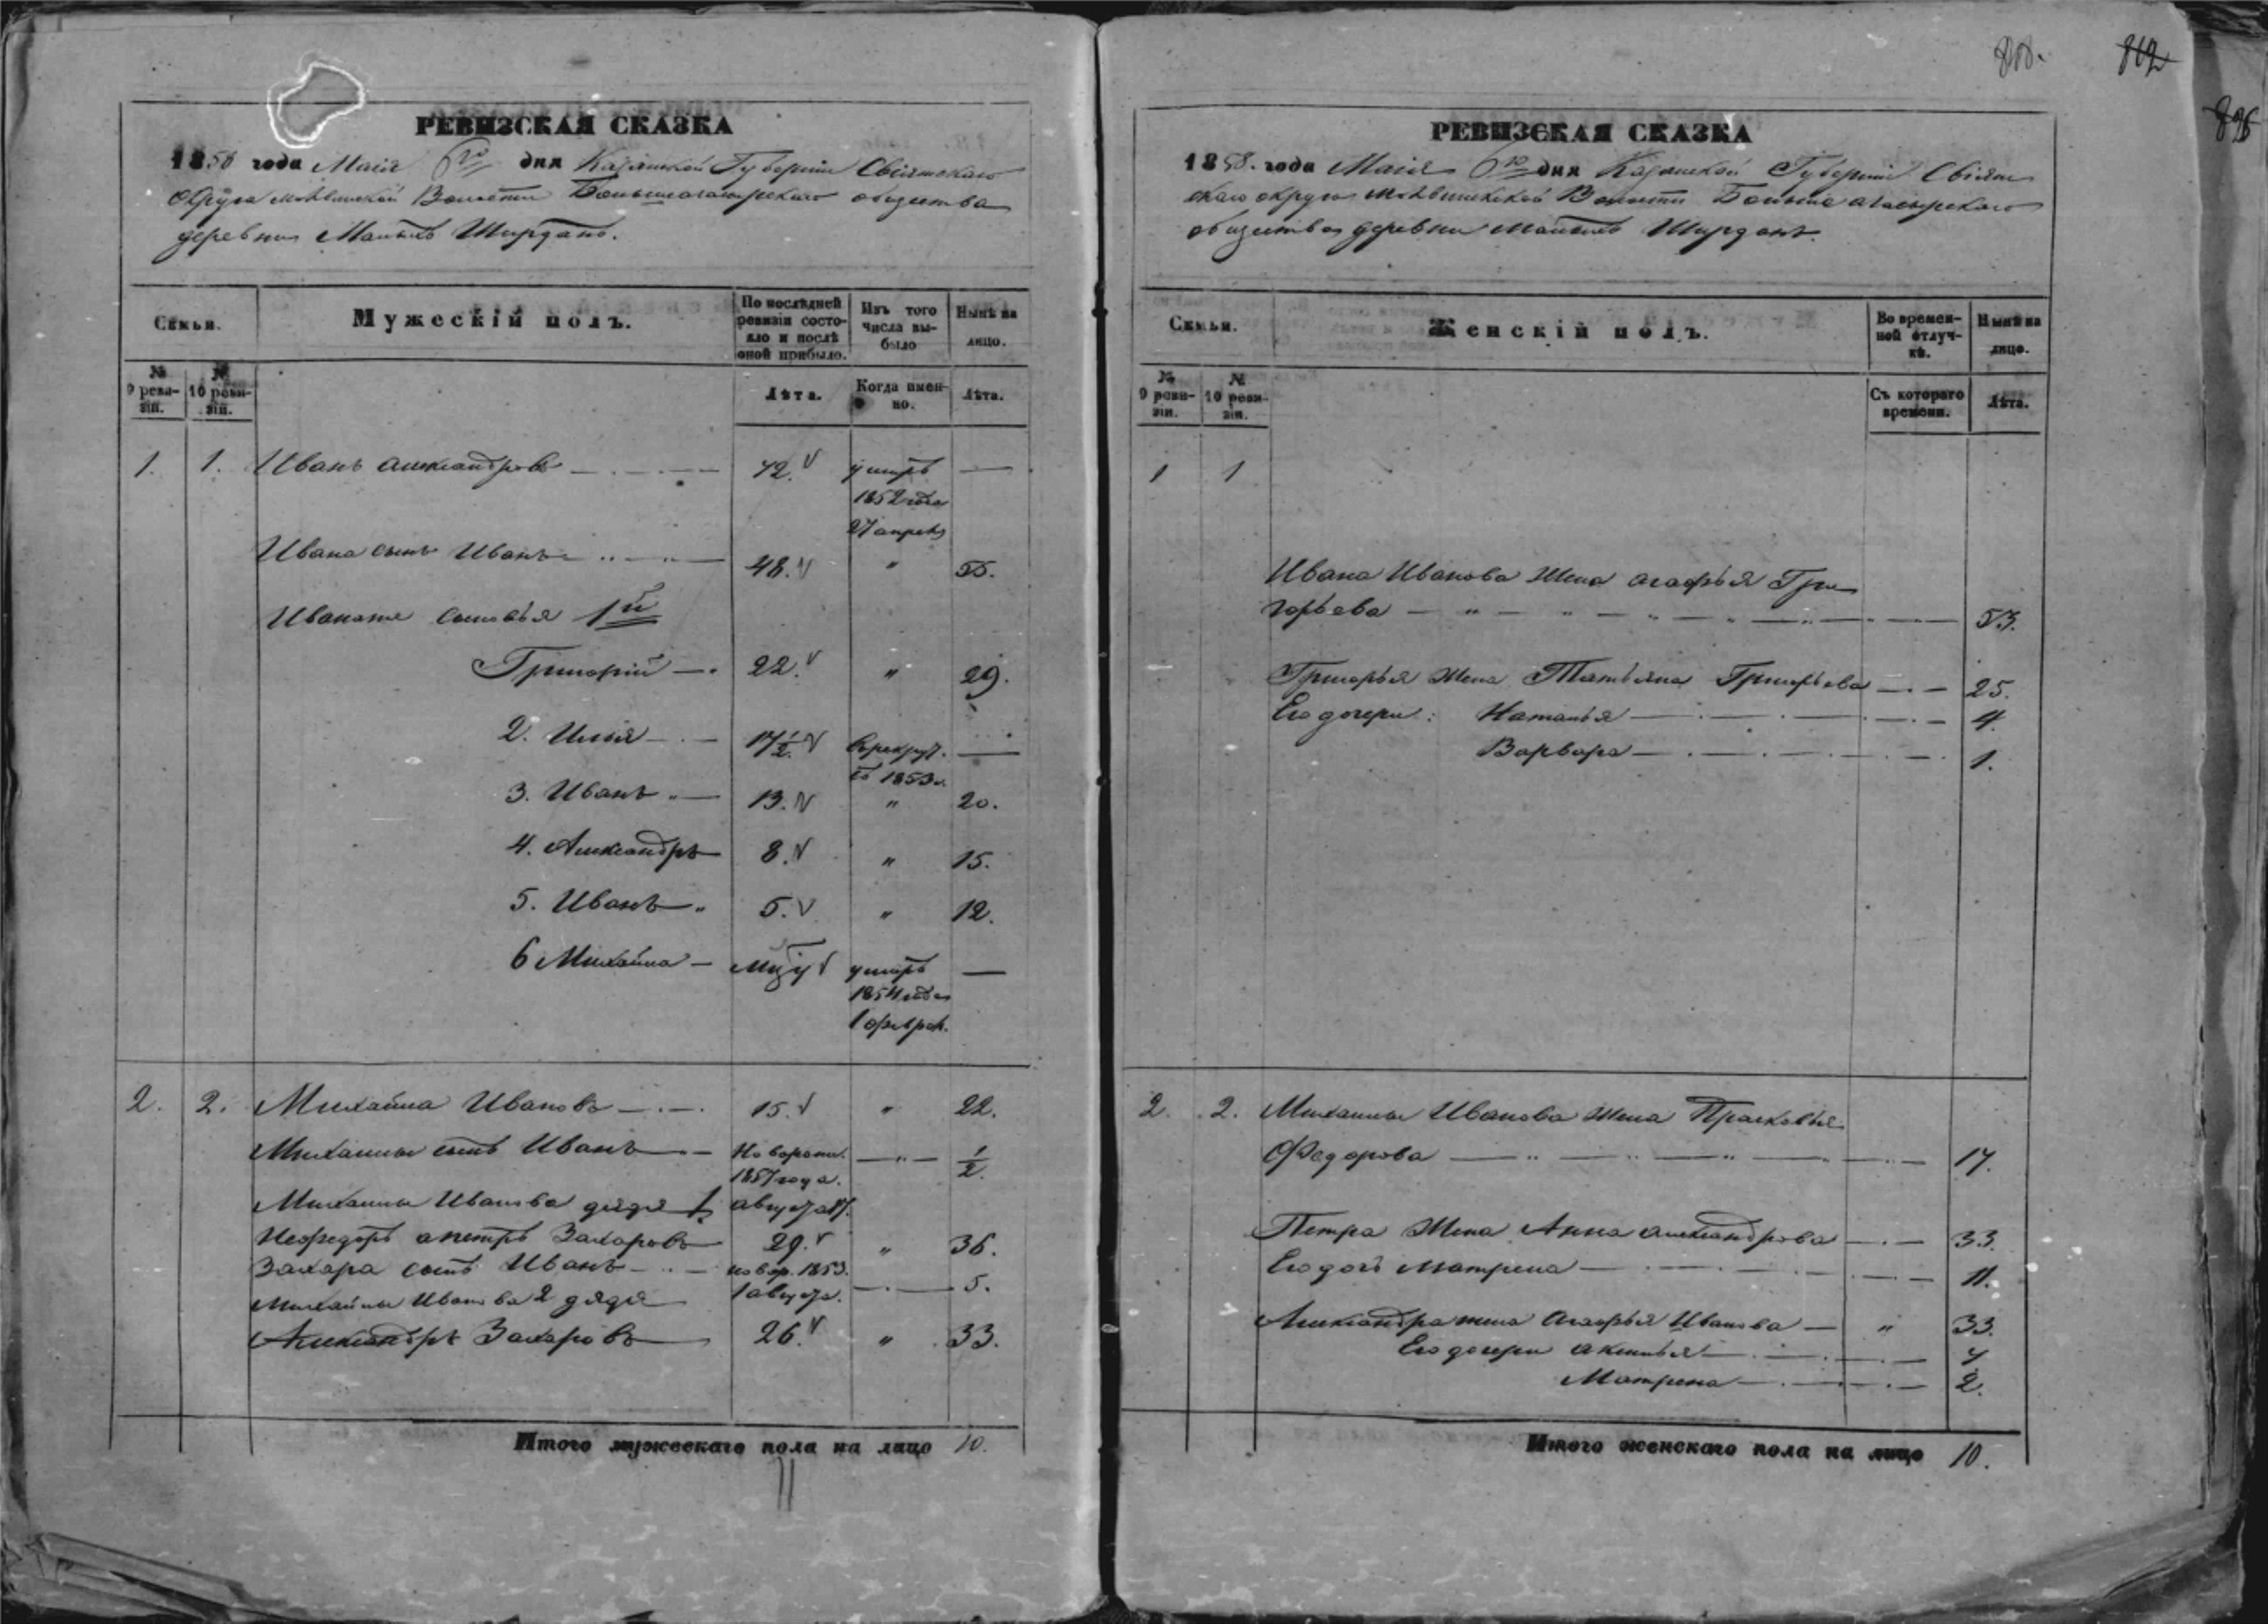 808. 812
896
РЕВИЗСКАЯ СКАЗКА
1858 года Маія 6го дня Казанской Губерніи Свіяжскаго
округа Волости Большеатарскаго общества
деревни Малыхъ Ширданъ.
Семьи.
Мужескій полъ.
По послѣдней ревизіи состояло и послѣ оной прибыло.
Изъ того числа выбыло
Нынѣ на лицо.
№ 9 ревизіи.
№ 10 ревизіи.
Лѣта.
Когда именно.
Лѣта.
1. 1. Иванъ Александровъ — 42. умеръ —
1852 года
27 апрѣл
Ивана сынъ Иванъ — 48. " 55.
Иванаже сыновья 1й
Григорій — 22. " 29.
2. Илья — 17½ въ рекрут. —
въ 1853 г.
3. Иванъ " — 13. " 20.
4. Александръ 8. " 15.
5. Иванъ " 5. " 12.
6 Михайла — умеръ —
1854 года
1 феврал.
2. 2. Михайла Ивановъ — 15. " 22.
Михайлы сынъ Иванъ — Новорожн. — " — ½
1857 года.
Михайлы Иванова дядя 1. август.
Нефедъ Петръ Захаровъ 29. " 36.
Захара сынъ Иванъ — новор. 1853. 5.
Михайлы Иванова 2 дядя 1 августа.
Александръ Захаровъ 26. " 33.
Итого мужескаго пола на лицо 10.
РЕВИЗСКАЯ СКАЗКА
1858. года Маія 6го дня Казанской Губерніи Свіяж
скаго округа Волости Большеатарскаго
общества деревни Малыхъ Ширданъ.
Семьи.
Женскій полъ.
Во временной отлучкѣ.
Нынѣ на лицо.
№ 9 ревизіи.
№ 10 ревизіи.
Съ котораго времени.
Лѣта.
1 1
Ивана Иванова жена Агафья Гри
горьева — " — " — 53.
Григорья жена Татьяна Григорьева — 25.
Его дочери: Наталья — 4.
Варвара — 1.
2. 2. Михайлы Иванова жена Прасковья
Федорова — " — " — 17.
Петра жена Анна Александрова — 33.
Его дочь Матрена — 11.
Александра жена Агафья Иванова — " 33.
Его дочери Аксинья — 4
Матрена — 2.
Итого женскаго пола на лицо 10.